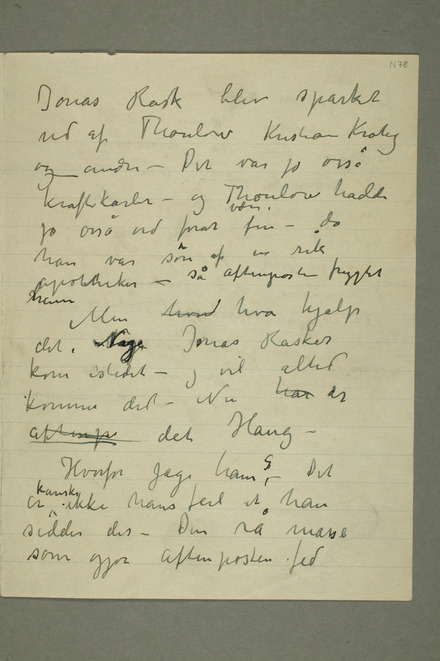 N 78
Jonas Rask blev sparket
ud af Thaulow Kristian Krohg
og andre – Det var jo også
kraftkarler – og Thaulow hadde
jo også råd være foruden – da
han var søn af en rik
apotheker – så aftenposten frygtet
ham
Men hvad hva hjalp
det. Jonas Rasker
kom istedet – og vil altid
komme det – Nu har er
aftenp det Haug –
Hvorfor jage ham? – Det
er kanske ikke hans feil at han
sidder der – Den rå masse
som gjør aftenposten fed